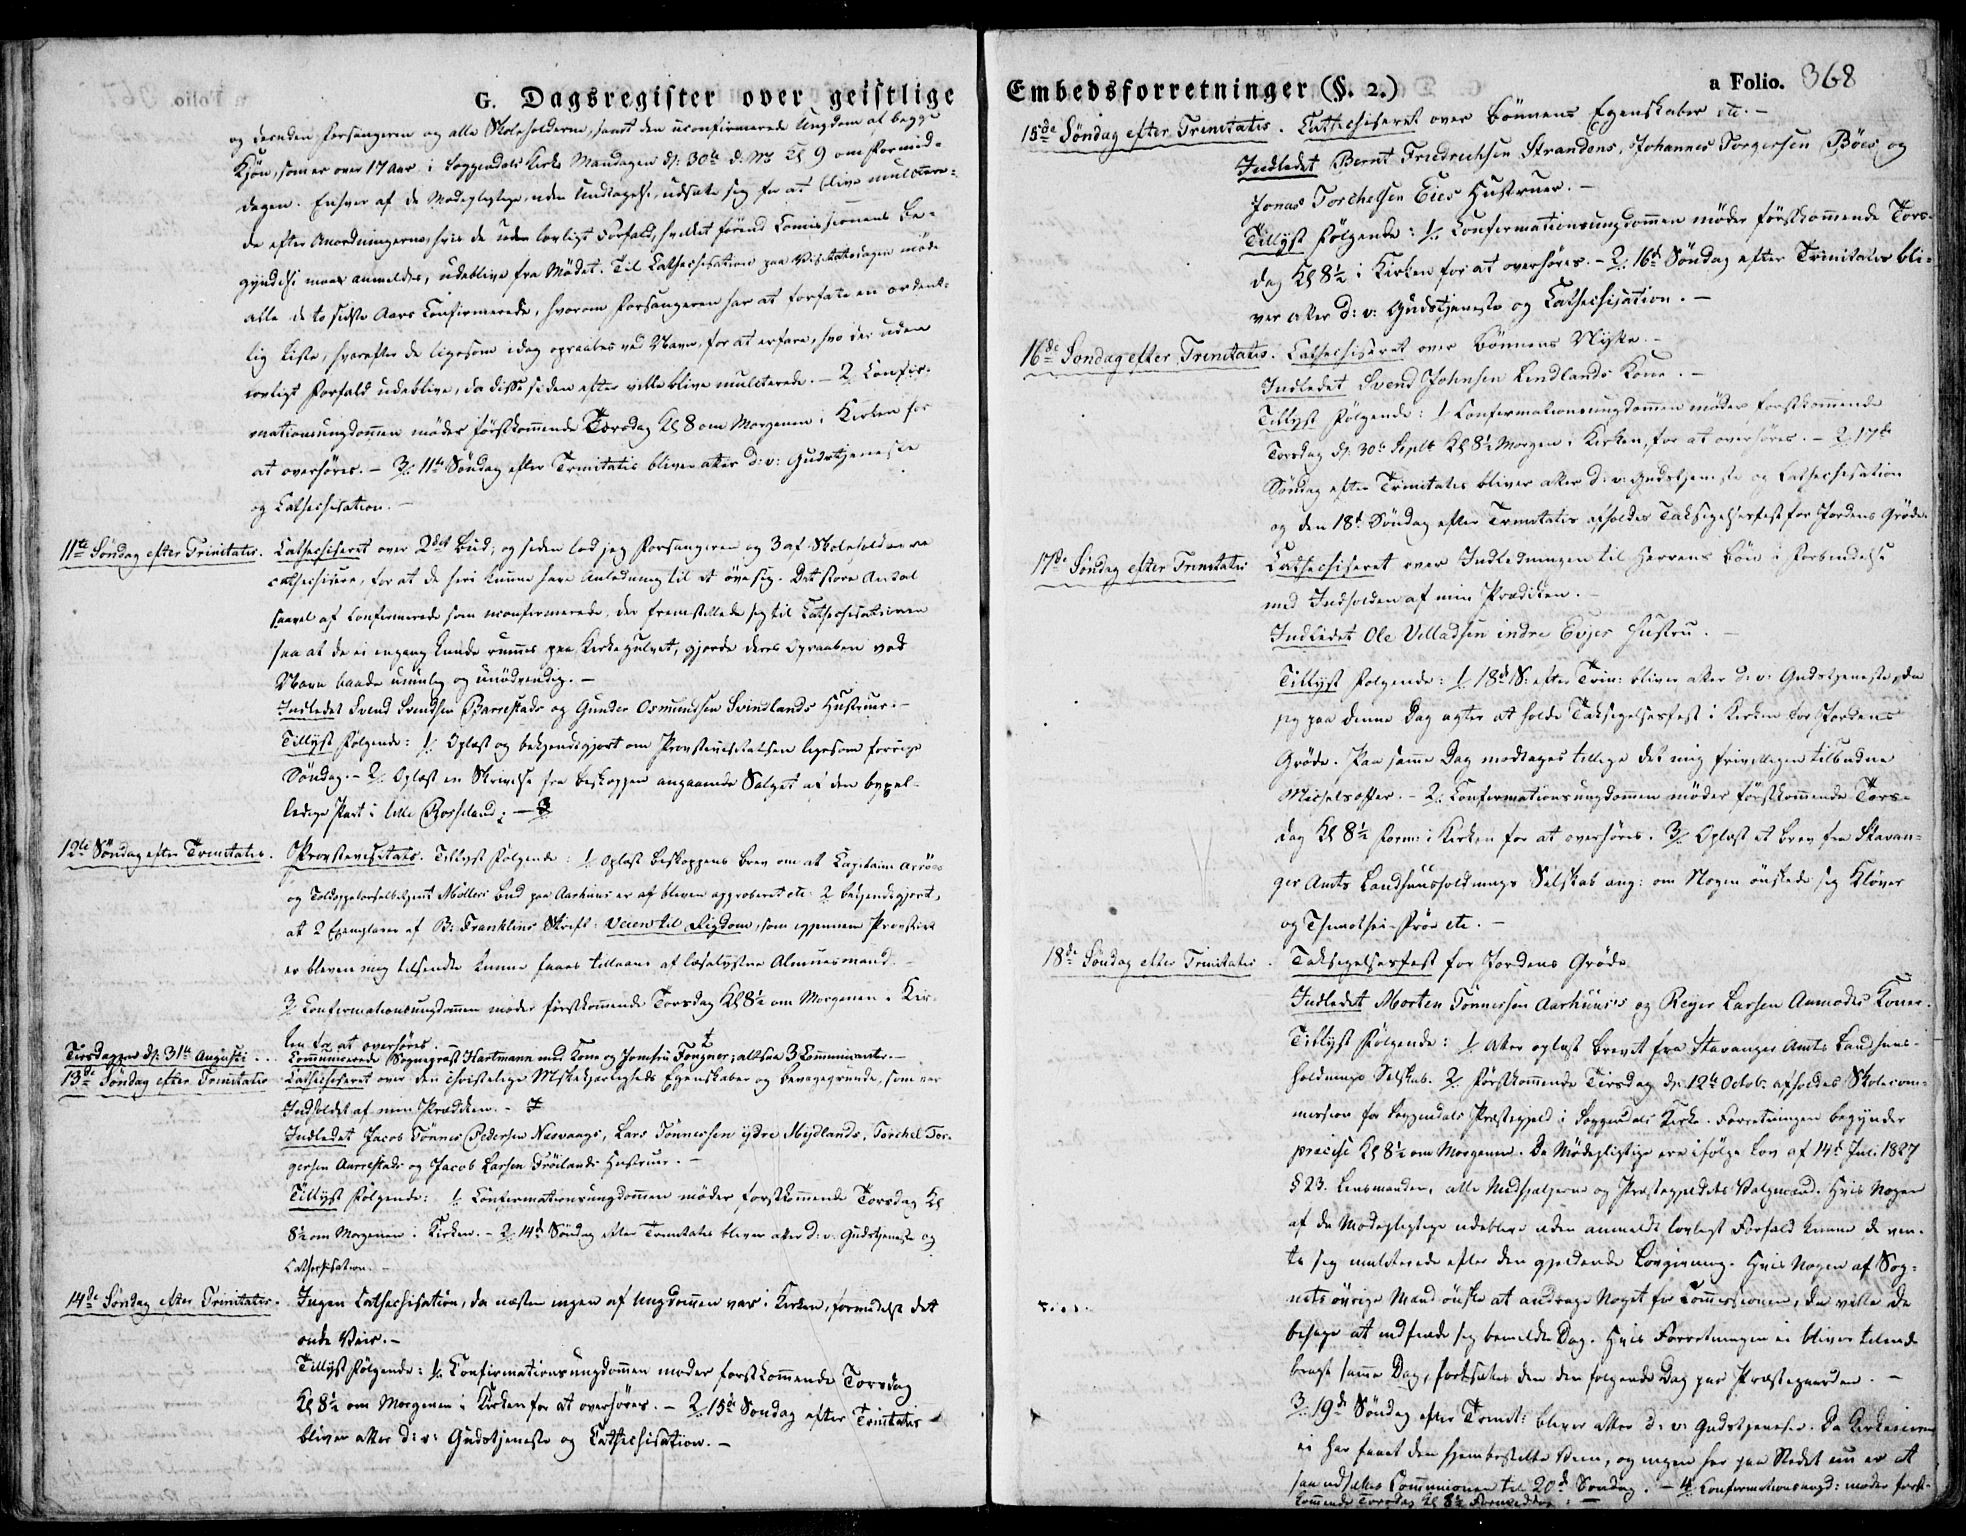 G. Dagsregister over geistlige
og desuden Forsangeren og alle Skoleholderne, samt den uconfirmerede Ungdom af begge
Kjøn, som er over 17 Aar i Soggendals Kirke Mandagen d: 30te d: M: Kl 9 om Formid-
dagen. Enhver af de Mødepligtige, uden Undtagelse, udsætte sig for at blive mulctere-
de efter Anordningerne, hvis de uden lovligt Forfald, hvilket førend Comissionens Be-
gyndelse maae anmeldes, udeblive fra Mødet. Til Cathechisation paa Visitatsdagen møde
alle de to sidste Aars Confirmerede, hvorom Forsangeren har at forfatte en ordent-
lig Liste, hvorefter de ligesom idag opraabes ved Navn, for at erfare, hvo der uden
lovligt Forfald udeblive, da disse siden efter ville blive mulcterede. – 2/. Confir-
mationsungdommen møder førstkommende Torsdag Kl 8 om Morgenen i Kirken for
at overhøres. – 3/. 11te Søndag efter Trinitatis bliver atter d: v: Gudstjeneste
og Cathechisation. –
11te Søndag efter Trinitatis. Cathechiseret over 2det Bud; og siden lod jeg Forsangeren og 3 af Skoleholderne
cathechisere, for at de heri kunne have Anledning til at øve sig. Det store Antal
saavel af Confirmerede som uconfirmerede, der fremstillede sig til Cathechisationen
saa at de ei engang kunde rummes paa Kirkegulvet, gjorde deres Opraaben ved
Navn baade umulig og unødvendig. –
Indledet Svend Svendsen Barrestads og Gunder Osmundsen Svindlands Hustruer. –
Tillyst Følgende: 1/. Oplæst og bekjendtgjort om Provstevisitatsen ligesom forrige
Søndag. – 2/. Oplæst en Skrivelse fra Biskoppen angaaende Salget af den
Part i lille Rosseland; –
12te Søndag efter Trinitatis. Provstevisitats. Tillyst Følgende: 1/. Oplæst Biskoppens Brev om at Capitain
og Møllers Bud paa Aarhuus er af bleven approberet etc: 2/. bekjendtgjort,
at 2 Exemplarer af B: Franklins Skrift: Veien til Rigdom, som igjennem Provstiet
er bleven mig tilsendte kunne faaes tillaans af læselystne Almuesmænd. –
3/. Confirmationsungdommen møder førstkommende Torsdag Kl 8½ om Morgenen i Kir-
ken for at overhøres.
Tirsdagen d: 31te Augusti. Communicerede Sognepræst Hartmann med Kone og Jomfru Fongner; altsaa 3 Communicanter. –
13de Søndag efter Trinitatis Cathechiseret over den christelige Egenskaber og Bevæggrunde, som var
Indholdet af min Prædiken. –
Indledet Jacob Tønnes Pedersen Nesvaags, Lars Tønnessen ydre Mydlands, Torchel Tor-
gersen Aarrestads og Jacob Larsen Frøilands Hustruer. –
Tillyst Følgende: 1/. Confirmationsungdommen møder førstkommende Torsdag Kl
8½ om Morgenen i Kirken. – 2/. 14de Søndag efter Trinitatis bliver atter d: v: Gudstjeneste og
Cathechisation. –
14de Søndag efter Trinitatis. Ingen Cathechisation, da næsten ingen af Ungdommen var i Kirken, formedelst det
onde Veir. –
Tillyst Følgende: 1/. Confirmationsungdommen møder førstkommende Torsdag
Kl 8½ om Morgenen i Kirken for at overhøres. – 2/. 15de Søndag efter Trinitatis
bliver atter d: v: Gudstjeneste og Cathechisation. –
Embedsforretninger (§. 2.)
a Folio. 368
15de Søndag efter Trinitatis. Cathechiseret over Bønnens Egenskaber etc. –
Indledet Bernt Friedrichsen Strandens, Johannes Torgersen Böes og
Jonas Torchelsen Eies Hustruer. –
Tillyst Følgende: 1/. Confirmationsungdommen møder førstkommende Tors-
dag Kl 8½ i Kirken for at overhøres. – 2/. 16de Søndag efter Trinitatis bli-
ver atter d: v: Gudstjeneste og Cathechisation. –
16de Søndag efter Trinitatis. Cathechiseret over Bønnens Nytte. –
Indledet Svend Johnsen Lindlands Kone. –
Tillyst Følgende: 1/. Confirmationsungdommen møder førstkommende
Torsdag d: 30te Septbr Kl 8½ Morgen i Kirken, for at overhøres. – 2/. 17de
Søndag efter Trinitatis bliver atter d: v: Gudstjeneste og Cathechisation
og den 18de Søndag efter Trinitatis afholdes Taksigelsesfest for Jordens Grøde.
17de Søndag efter Trinitatis Cathechiseret over Indledningen til Herrens Bøn i Forbindelse
med Indholdet af min Prædiken. –
Indledet Ole Villadsen indre Eyjes Hustru. –
Tillyst Følgende: 1/. 18de S: efter Trin: bliver atter d: v: Gudstjeneste, da
jeg paa denne Dag agter at holde Taksigelsesfest i Kirken for Jordens
Grøde. Paa samme Dag modtages tillige det mig frivilligen tilbudne
Michelsoffer. – 2/. Confirmationsungdommen møder førstkommende Tors-
dag Kl 8½ Form: i Kirken for at overhøres. 3/. Oplæst et Brev fra Stavan-
ger Amts Landhuusholdnings Selskab ang: om Nogen ønskede sig Kløver
og Thimothei-Frøe etc. –
18de Søndag efter Trinitatis. Taksigelsesfest for Jordens Grøde
Indledet Morten Tønnessen Aarhuus's og Reyer Larsen Aamodts Koner.
Tillyst Følgende: 1/. Atter oplæst Brevet fra Stavanger Amts Landhuus-
holdnings Selskab. 2/. Førstkommende Tirsdag d: 12te Octob: afholdes Skolecom-
mission for Soggendals Præstegjeld i Soggendals Kirke. Forretningen begynder
præcise Kl 8½ om Morgenen. De Mødepligtige ere ifølge Lov af 14de Juli 1827
§ 23. Lensmanden, alle Medhjælperne og Præstegjeldets Valgmænd. Hvis Nogen
af de Mødepligtige udeblive uden anmeldt lovligt Forfald kunne de ven-
te sig mulcterede efter den gjeldende Lovgivning. Hvis Nogen af Sog-
nets øvrige Mænd ønske at andrage Noget for Commissionen, da ville de
behage at indfinde sig bemeldte Dag. Hvis Forretningen ei bliver tilende-
bragt samme Dag, fortsættes den den følgende Dag paa Præstegaarden. –
3/. 19de Søndag efter Trinit: bliver atter d: v: Gudstjeneste. Da
ei har faaet den hjembestilte Viin, og ingen her paa Stedet nu er at
faae udsættes Communionen til 20de Søndag. – 4/. Confirmationsungd: møder først-
kommende Torsdag Kl 8½ Formiddag. –